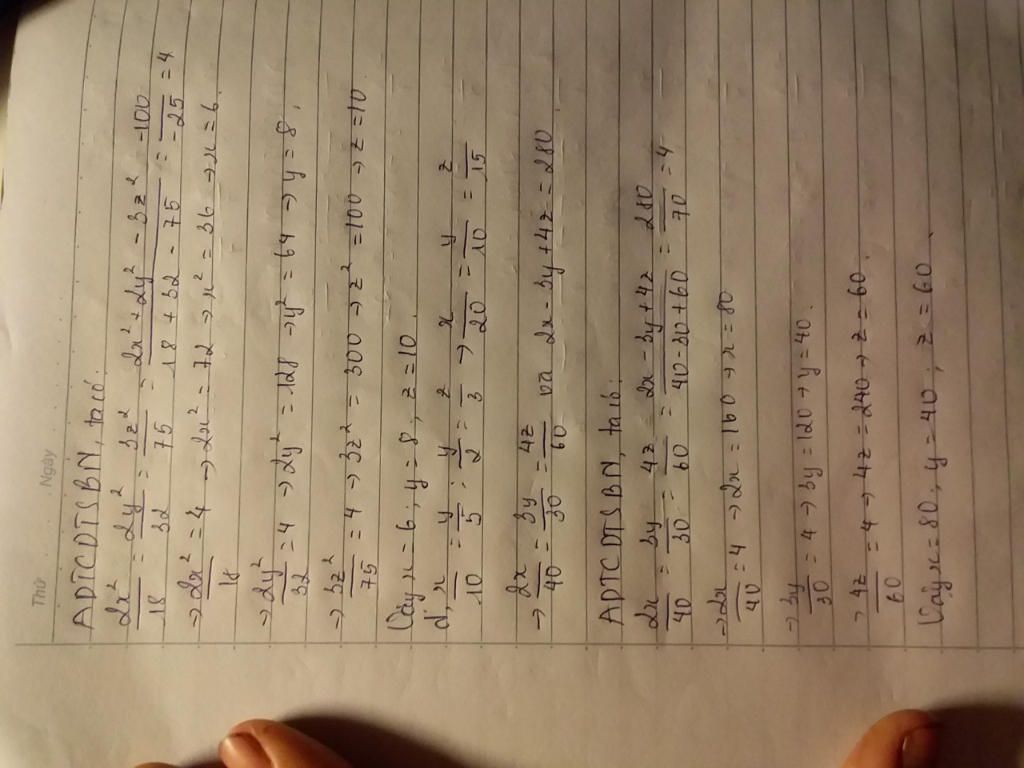 Thứ Ngày
ADTCDTSBN, ta có:
2x²/18 = 2y²/32 = 3z²/75 = (2x² + 2y² - 3z²)/(18 + 32 - 75) = -100/-25 = 4
→ 2x²/18 = 4 → 2x² = 72 → x² = 36 → x = 6
→ 2y²/32 = 4 → 2y² = 128 → y² = 64 → y = 8.
→ 3z²/75 = 4 → 3z² = 300 → z² = 100 → z = 10
Vậy x = 6, y = 8, z = 10
d, x/10 = y/5; y/2 = z/3 → x/20 = y/10 = z/15
→ 2x/40 = 3y/30 = 4z/60 và 2x - 3y + 4z = 280
ADTCDTSBN, ta có:
2x/40 = 3y/30 = 4z/60 = (2x - 3y + 4z)/(40 - 30 + 60) = 280/70 = 4
→ 2x/40 = 4 → 2x = 160 → x = 80
→ 3y/30 = 4 → 3y = 120 → y = 40.
→ 4z/60 = 4 → 4z = 240 → z = 60.
Vậy x = 80, y = 40, z = 60.